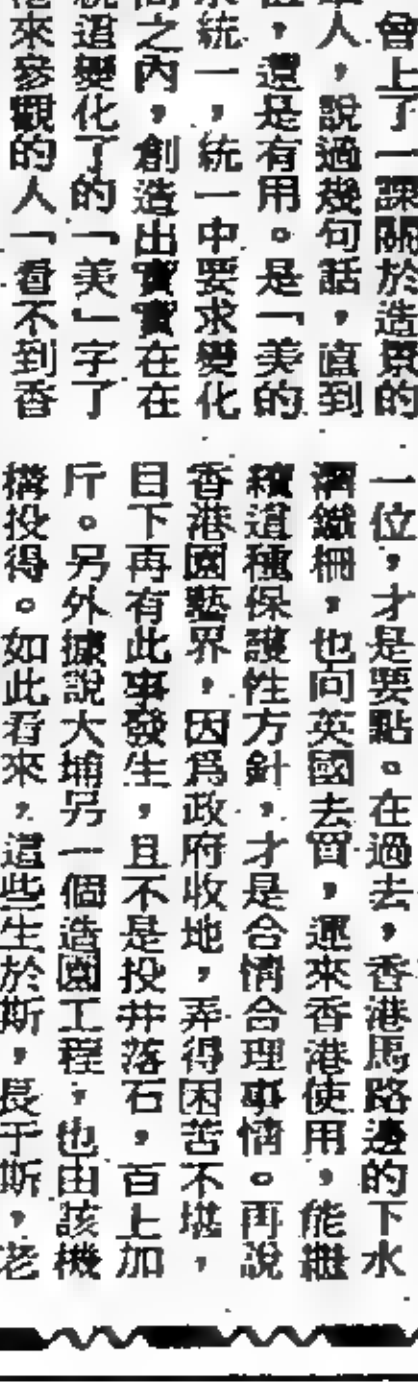 會上了一課關於造景的
人，說過幾句話，直到
，還是有用。是「美的
統一，統一中要求變化
之內，創造出實實在在
這變化了的「美」字了
來參觀的人「看不到香
一位，才是要點。在過去，香港馬路邊的下水
鐵柵，也向英國去買，運來香港使用，能繼
續這種保護性方針，才是合情合理事情。再說
香港園藝界，因爲政府收地，弄得困苦不堪，
目下再有此事發生，且不是投井落石，百上加
斤。另外據說大埔另一個造園工程，也由該機
構投得。如此看來，這些生於斯，長于斯，老